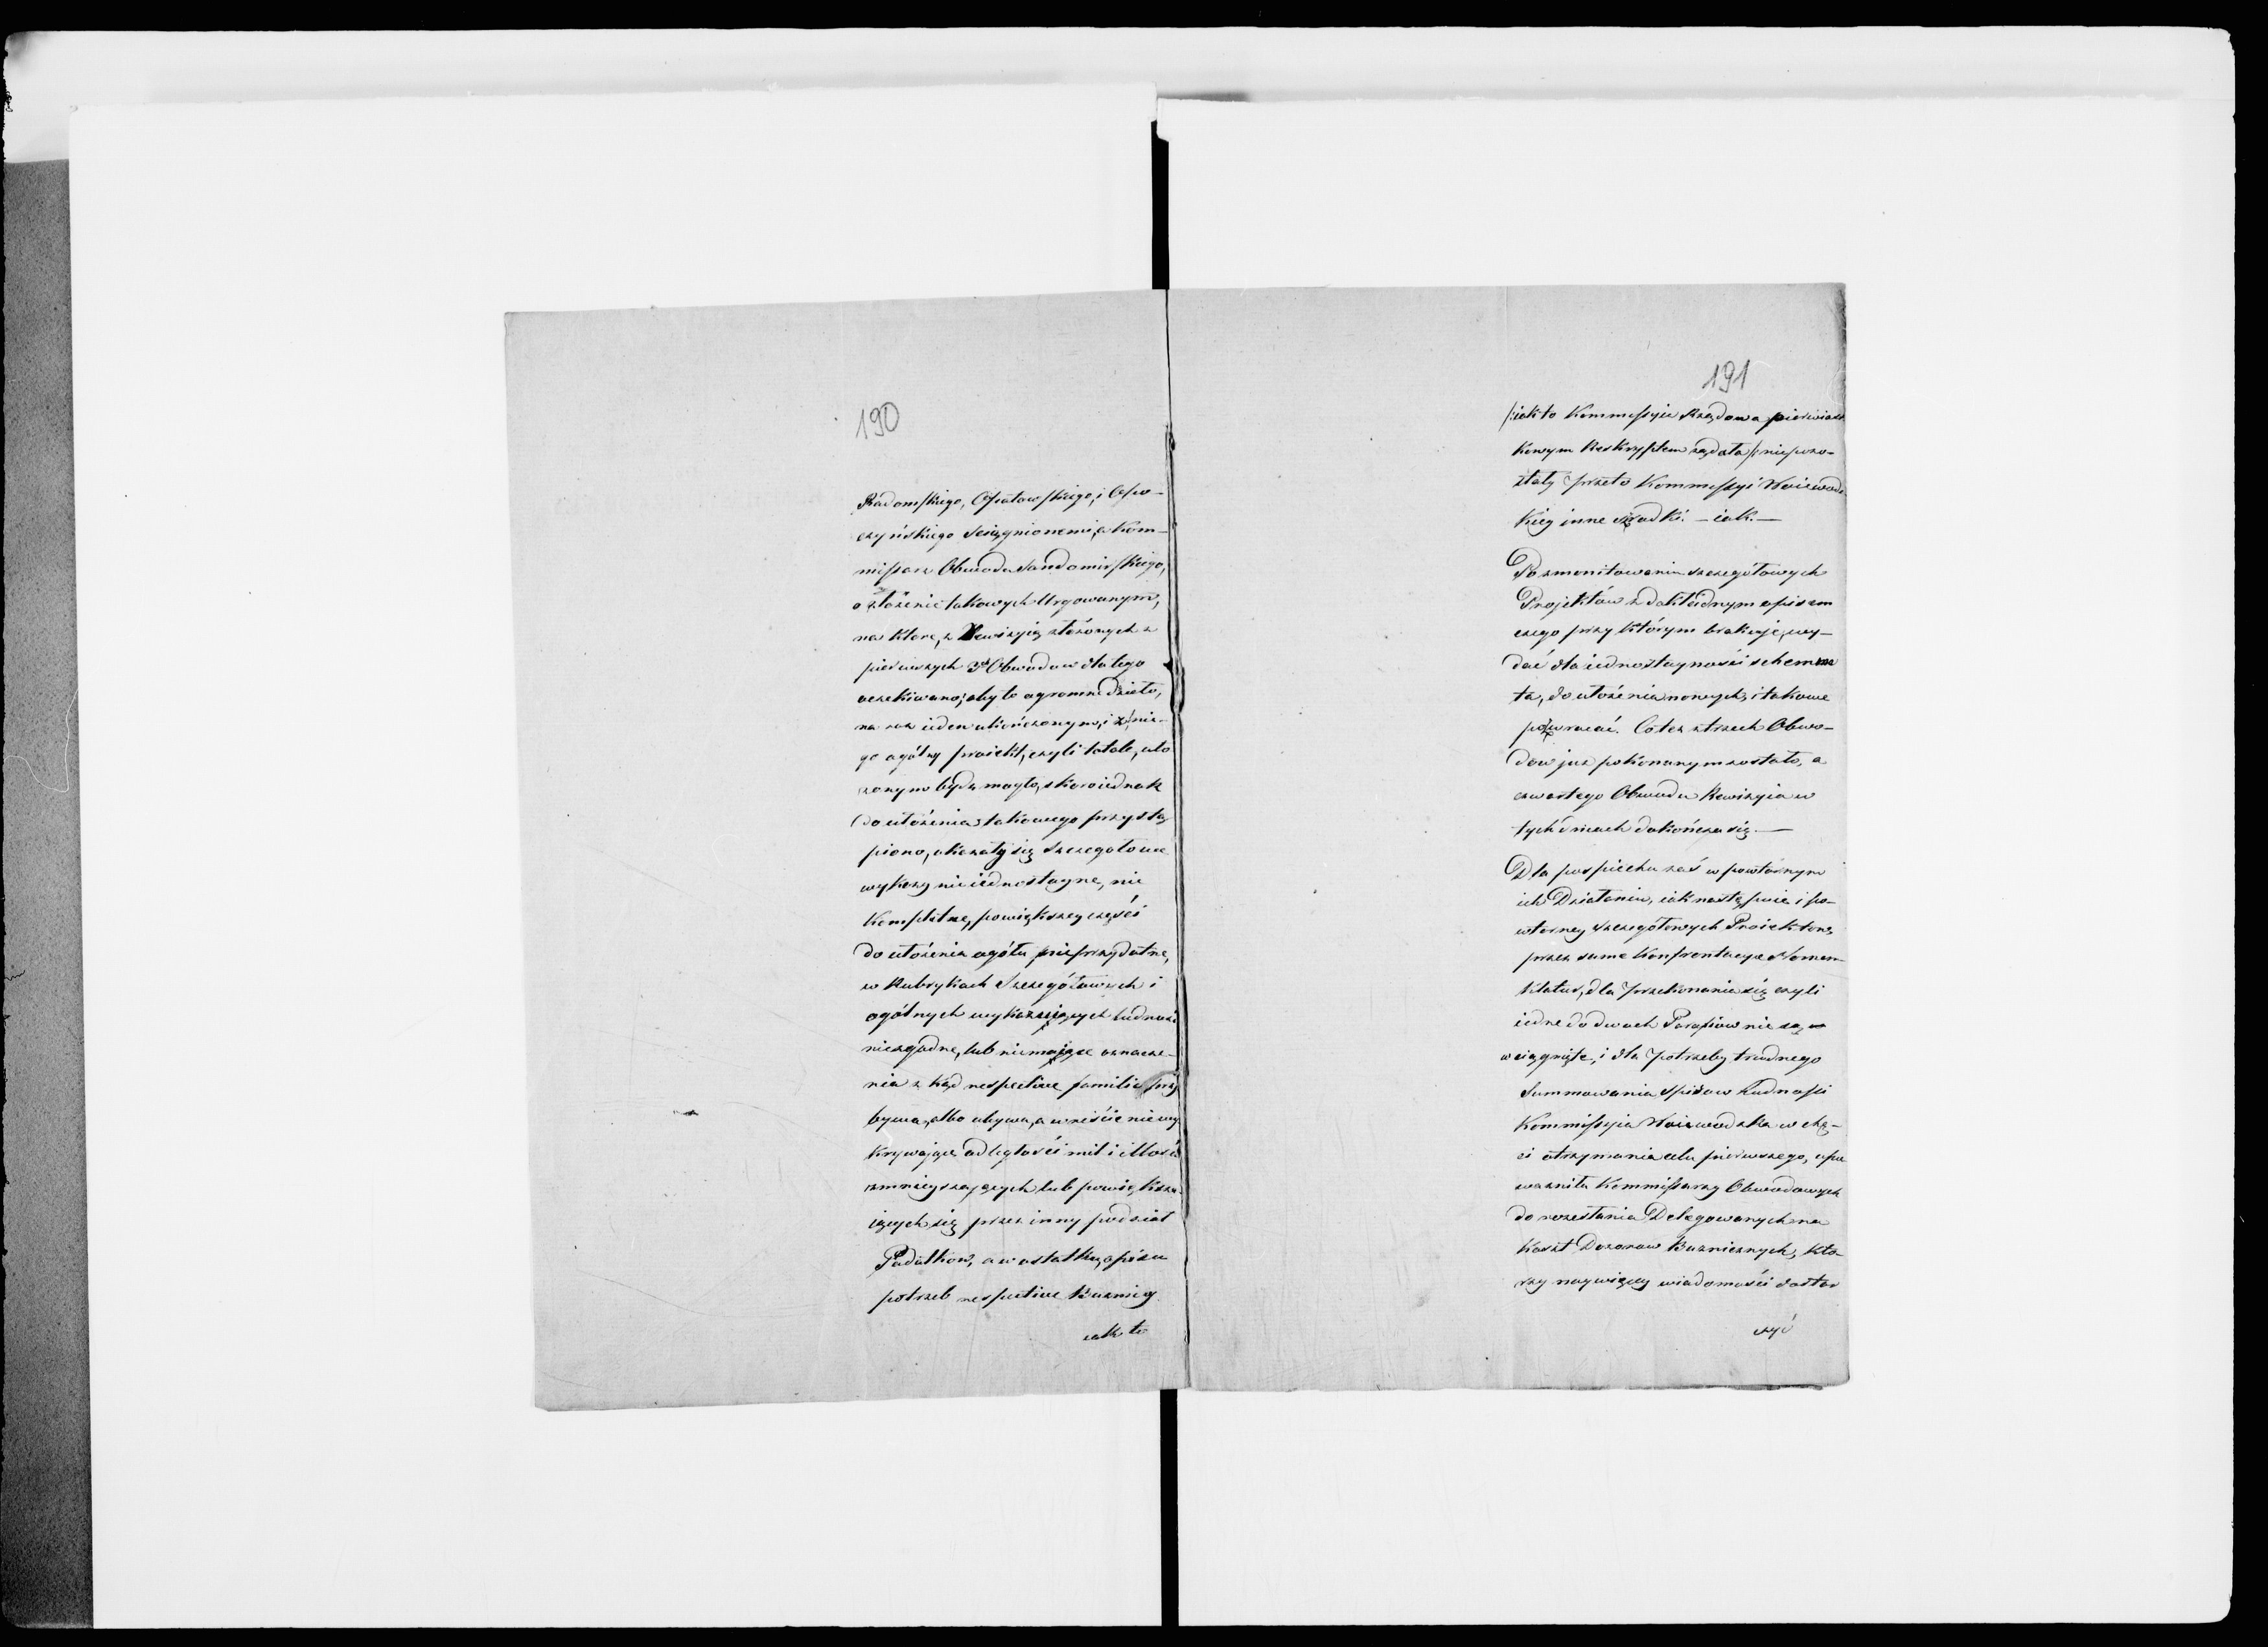 190
Radomskiego, Opatowskiego, i Opo-
czyńskiego ściągnionemi, a Kom-
missarz Obwodu Sandomirskiego,
o złożenie takowych Urgowanym,
na które, z Rewizyią złożonych z
pierwszych 3ch Obwodow dla tego
oczekiwano; aby to ogromne dzieło,
na raz ieden ukończonym, i z nie-
go ogólny proiekt, czyli total, uło
żonym bydź mogło, skoro iednak
do ułożenia takowego przystą
piono, okazały się szczegołowe
wykazy nieiednostayne, nie
Kompletne, powiększey części
do ułożenia ogółu nieprzydatne,
w Rubrykach Szczegółowych i
ogólnych wykazuiących ludność
niezgodne, lub niemaiące oznacze-
nia z kąd respective familie przy
bywa, albo ubywa, a w reście niewy
Krywaiące odległości mil i illości
zmnieyszaiących lub powiększa-
iących się przez inny podział
Podatkow, a w ostatku, opisu
potrzeb respective Bużnicy
iak to
191
/:iak to Kommissyia Rządowa pierwiast
kowym Reskryptem żądała:/ niepozo-
stały przeto Kommissyi Woiewodz
kiey inne szrodki. — iak. —
Po zmonitowaniu szczegółowych
Projektów z dokładnym opisem
czego przy którym brakuje, wy-
dać dla iednostayności schemma
ta, do ułożenia nowych, i takowe
pozwracać. Co też z trzech Obwo-
dow juz pokonanym zostało, a
czwartego Obwodu Rewizyia w
tych dniach dokończa się. —
Dla pospiechu zaś w powtórnym
ich Działaniu, iak nastąpieie i po-
wtorney szczegółowych Proiektow,
przez same Konfrontacye Nomen
klatur, dla przekonania się czyli
iedne do dwoch Parafiow nie są
wciągnięte, i dla potrzeby trudnego
Summowania Spisow Ludności
Kommissyia Woiewodzka w chę-
ci otrzymania celu pierwszego, upo
ważniła Kommissarzy Obwodowych
do rozesłania Delegowanych na
koszt Dozorow Bużnicznych, któ-
rzy naywięcey wiadomości dostar
czyć